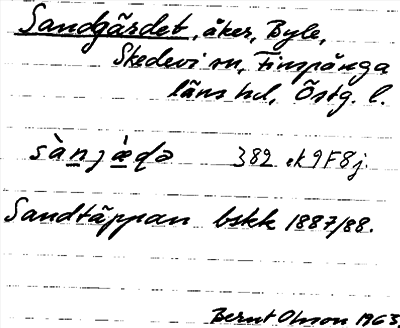 Sandgärdet, åker, Byle,
Skedevi sn, Finspånga
läns hd, Östg. l.
sànȷæ̀ɖə 382 ek9F8j.
Sandtäppan bskk 1887/88.
Bernt Olsson 1963.